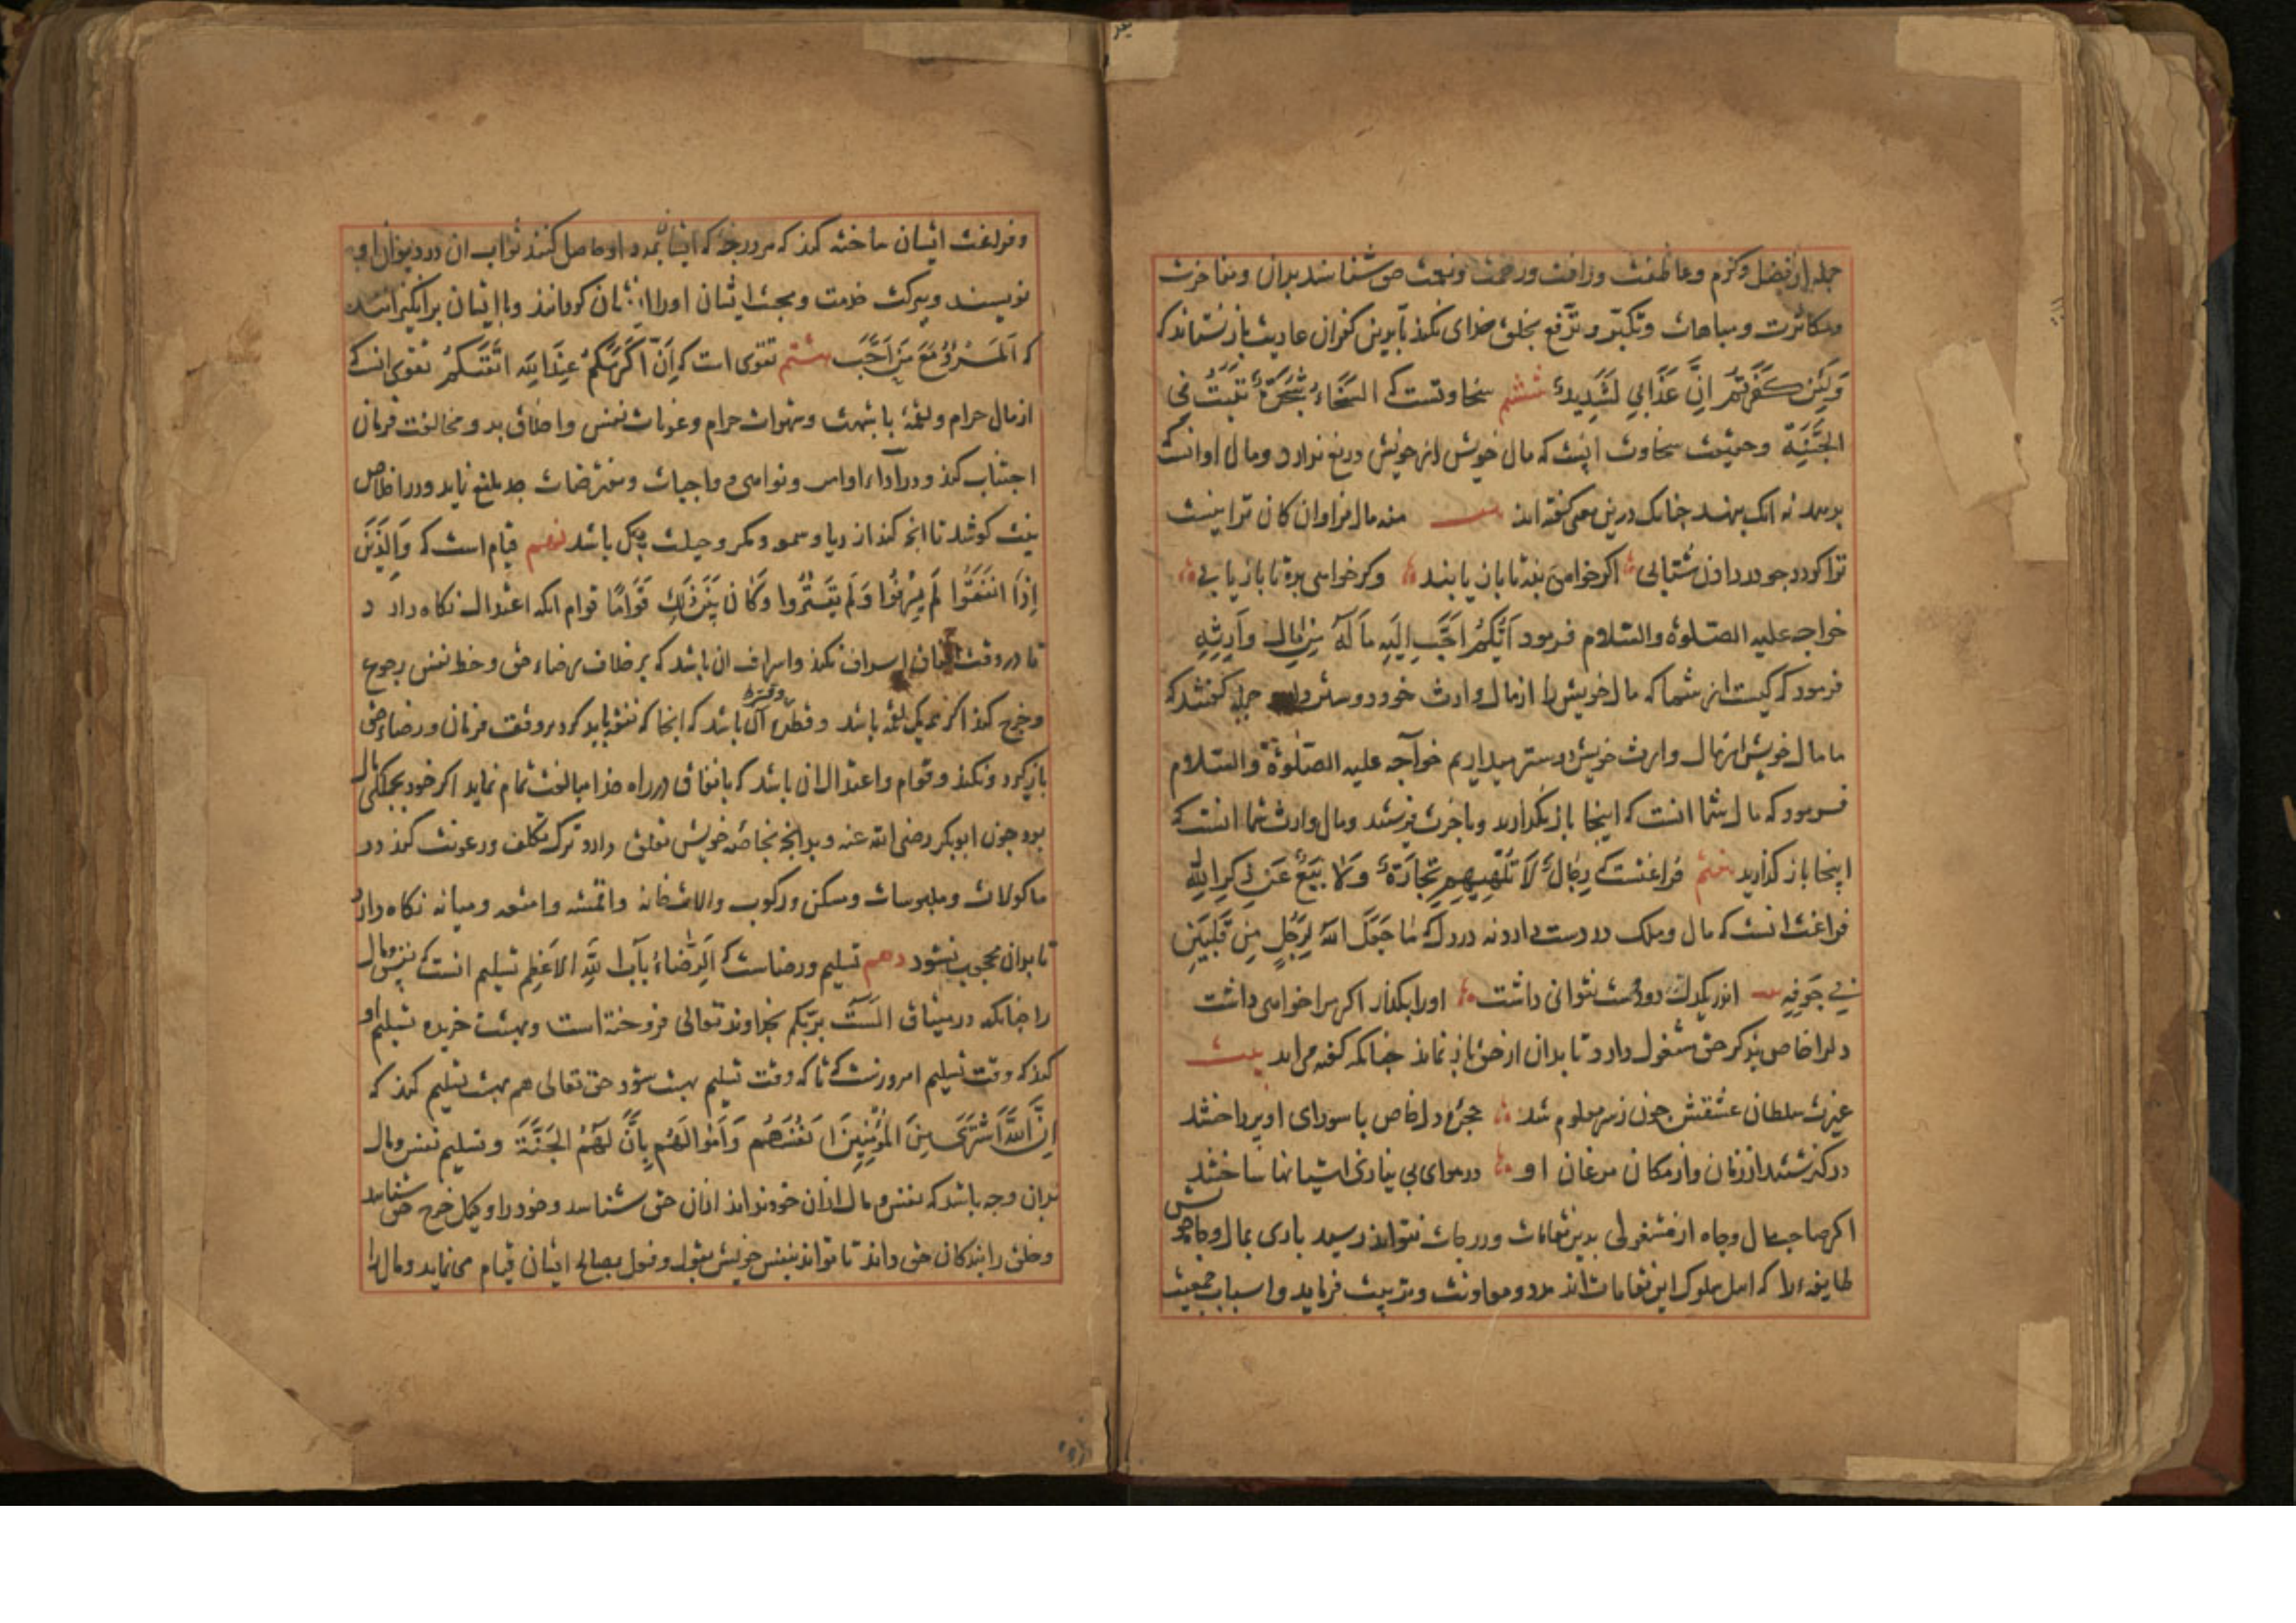 جمله از فضل و کرم و عاطفت و رافت و رحمت و نعمت حق شناسد بدان و مفاخرت
و مکاثرت و مباهات و تکبر و ترفع بخلق خدای نکند تا بدین کفران عاریت باز نستاند که
وَلَئِن كَفَرتُم اِنَّ عَذَابِی لَشَدِیدٌ ششم سخاوتست که السَّخَاءُ شَجَرَةٌ تَنبُتُ فِی
الجَنَّةِ و حقیقت سخاوت اینست که مال خویش از خویش دریغ ندارد و مال او آنست که
بدهد نه آنک بنهد چنانک درین معنی گفته اند بیت منه مال فراوان کان ترا نیست
ترا گردد جو در دادن شتابی اگر خواهی بنه تا بان یابند وگر خواهی بده تا باز یابی
خواجه علیه الصلوة والسلام فرمود اَیُّکُم اَحَبُّ اِلَیهِ مَالُهُ مِن مَالِ وَارِثِهِ
فرمود که کیست از شما که مال خویش را از مال وارث خود دوستر دارد جمله گفتند که
ما مال خویش از مال وارث خویش دوستر میداریم خواجه علیه الصلوة والسلام
فرمود که مال شما انست که اینجا باز نگذارید و باخرت فرستید و مال وارث شما انست که
اینجا باز گذارید هفتم فراغتست که رِجَالٌ لَا تُلهِیهِم تِجَارَةٌ وَلَا بَیعٌ عَن ذِکرِ اللهِ
فراغت انست که مال و ملک در دست دارد نه در دل که مَا جَعَلَ اللهُ لِرَجُلٍ مِن قَلبَینِ
فِی جَوفِهِ بیت اندر یکدل دو دوست نتوانی داشت او را بگذار اگر مرا خواهی داشت
دل را خاص بذکر حق مشغول دارد تا بدان از حق باز نماند چنانکه گفته مراند بیت
غیرت سلطان عشقش چون ز سر معلوم شد حجره دل خاص با سودای او پرداختند
در گذشتند از زمان و از مکان مرغان او در هوای بی نیازی اشیانها ساختند
اگر صاحب مال و جاه از مشغولی بدین مقامات و درجات نتواند رسید باری بمال و جاه خویش
طایفه را که اهل سلوک این مقامات اند مدد و معاونت و تربیت فرماید و اسباب جمعیت
و فراغت ایشان ساخته کند که هر درجه که ایشان بمدد او حاصل کنند ثواب ان در دیوان او
نویسند و ببرکت خدمت و محبت ایشان او را از ایشان گردانند و با ایشان برانگیزانند
که اَلمَرءُ مَعَ مَن اَحَبَّ هشتم تقوی است که اِنَّ اَکرَمَکُم عِندَ اللهِ اَتقَیکُم تقوی انست که
از مال حرام و لقمهٔ با شبهت و شهوات حرام و رعونات نفس و اخلاق بد و مخالفت فرمان
اجتناب کند و در آداء اوامر و نواهی و واجبات و مفترضات جد بلیغ نماید و در اخلاص
نیت کوشد تا انچه کند از ریا و سمعه و مکر و حیلت پاک باشد نهم قوام است که وَالَّذِینَ
اِذَا اَنفَقُوا لَم یُسرِفُوا وَلَم یَقتُرُوا وَکَانَ بَینَ ذٰلِکَ قَوَامًا قوام انکه اعتدال نگاه دارد
تا در وقت انفاق اسراف نکند و اسراف ان باشد که بر خلاف رضاء حق و حظ نفس رجوع
و خرج کند اگر همه یک لقمه باشد و قطره و قتره آن باشد که انجا که نفقه باید کرد بر وفق فرمان و رضاء حق
باز گیرد و نکند و قوام و اعتدال ان باشد که بانفاق در راه خدا مبالغت تمام نماید اگر خود بجملگی مال
بود چون ابوبکر رضی الله عنه و بدانچه بخاصه خویش تعلق دارد ترک تکلف و رعونت کند در
ماکولات و ملبوسات و مسکن و مرکوب و الات خانه و اقمشه و امتعه و میانه نگاه دارد
تا بدان محجوب نشود دهم تسلیم و رضاست که اَلرِّضَاءُ بَابُ اللهِ الاَعظَمُ تسلیم انست که نفس و مال
را چنانکه در میثاق الست بربکم بخداوند تعالی فروخته است و بهشت خریده تسلیم او
کند که وقت تسلیم امروزست تا که وقت تسلیم بهشت شود حق تعالی هم بهشت تسلیم کند که
اِنَّ اللهَ اشتَرَی مِنَ المُؤمِنِینَ اَنفُسَهُم وَاَموَالَهُم بِاَنَّ لَهُمُ الجَنَّةَ و تسلیم نفس و مال
بدان وجه باشد که نفس و مال از ان خود نداند ازان حق شناسد و خود را وکیل خرج حق شناسد
و خلق را بندگان حق داند تا تواند بنفس خویش بقول و فعل بمصالح ایشان قیام می نماید و مال را